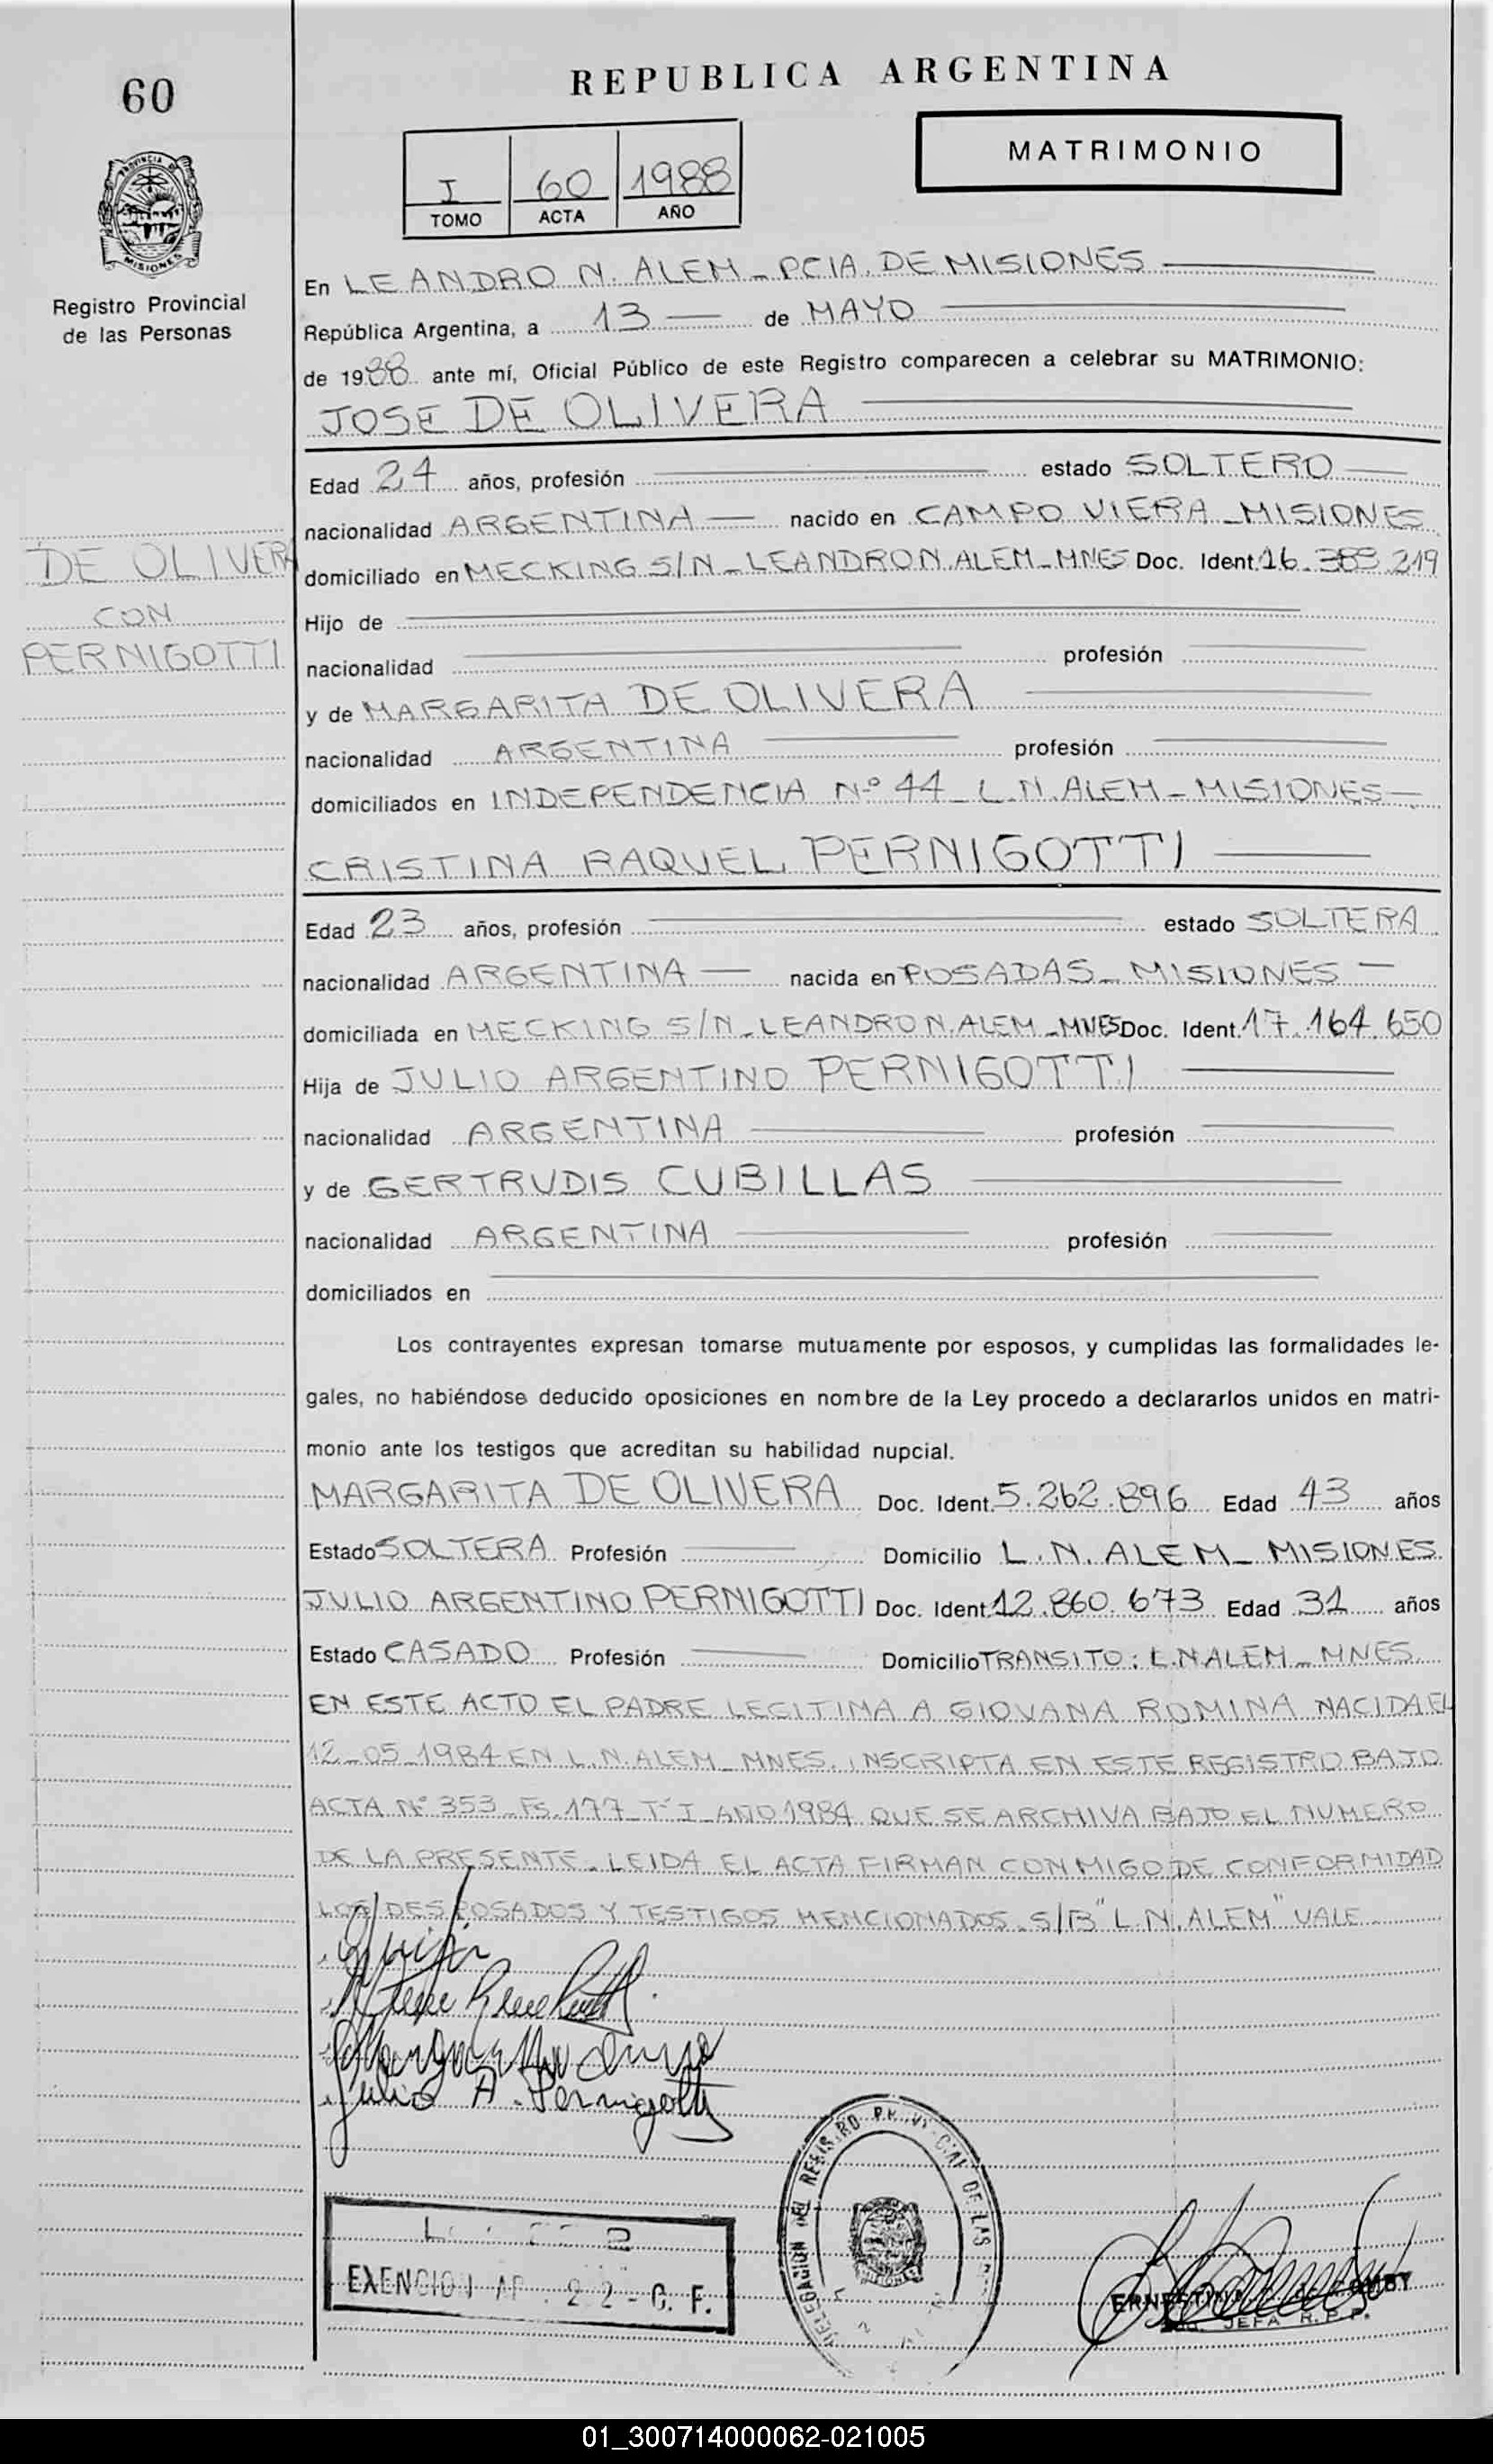 60
REPUBLICA ARGENTINA
MATRIMONIO
I 60 1988
TOMO ACTA AÑO
PROVINCIA DE
MISIONES
Registro Provincial
de las Personas
En LEANDRO N. ALEM - PCIA. DE MISIONES
República Argentina, a 13 de MAYO
de 1988 ante mí, Oficial Público de este Registro comparecen a celebrar su MATRIMONIO:
JOSE DE OLIVERA
Edad 24 años, profesión estado SOLTERO
nacionalidad ARGENTINA nacido en CAMPO VIERA - MISIONES
DE OLIVERA
CON
PERNIGOTTI
domiciliado en MECKING S/N - LEANDRO N. ALEM - MNES Doc. Ident. 16.389.219
Hijo de
nacionalidad profesión
y de MARGARITA DE OLIVERA
nacionalidad ARGENTINA profesión
domiciliados en INDEPENDENCIA Nº 44 - L.N. ALEM - MISIONES
CRISTINA RAQUEL PERNIGOTTI
Edad 23 años, profesión estado SOLTERA
nacionalidad ARGENTINA nacida en POSADAS - MISIONES
domiciliada en MECKING S/N - LEANDRO N. ALEM - MNES Doc. Ident. 17.164.650
Hija de JULIO ARGENTINO PERNIGOTTI
nacionalidad ARGENTINA profesión
y de GERTRUDIS CUBILLAS
nacionalidad ARGENTINA profesión
domiciliados en
Los contrayentes expresan tomarse mutuamente por esposos, y cumplidas las formalidades le-
gales, no habiéndose deducido oposiciones en nombre de la Ley procedo a declararlos unidos en matri-
monio ante los testigos que acreditan su habilidad nupcial.
MARGARITA DE OLIVERA Doc. Ident. 5.262.896 Edad 43 años
Estado SOLTERA Profesión Domicilio L.N. ALEM - MISIONES
JULIO ARGENTINO PERNIGOTTI Doc. Ident. 12.860.673 Edad 31 años
Estado CASADO Profesión Domicilio TRANSITO: L.N ALEM - MNES
EN ESTE ACTO EL PADRE LEGITIMA A GIOVANA ROMINA NACIDA EL
12-05-1984 EN L.N. ALEM - MNES. INSCRIPTA EN ESTE REGISTRO BAJO
ACTA Nº 353 - Fs. 177 - Tº I - AÑO 1984 QUE SE ARCHIVA BAJO EL NUMERO
DE LA PRESENTE - LEIDA EL ACTA FIRMAN CONMIGO DE CONFORMIDAD
LOS DESPOSADOS Y TESTIGOS MENCIONADOS - S/B "L.N. ALEM" VALE
Julio A. Pernigotti
DELEGACION DEL REGISTRO PROVINCIAL DE LAS
EXENCION AR 22 - C. F.
JEFA R. P. P.
01_300714000062-021005